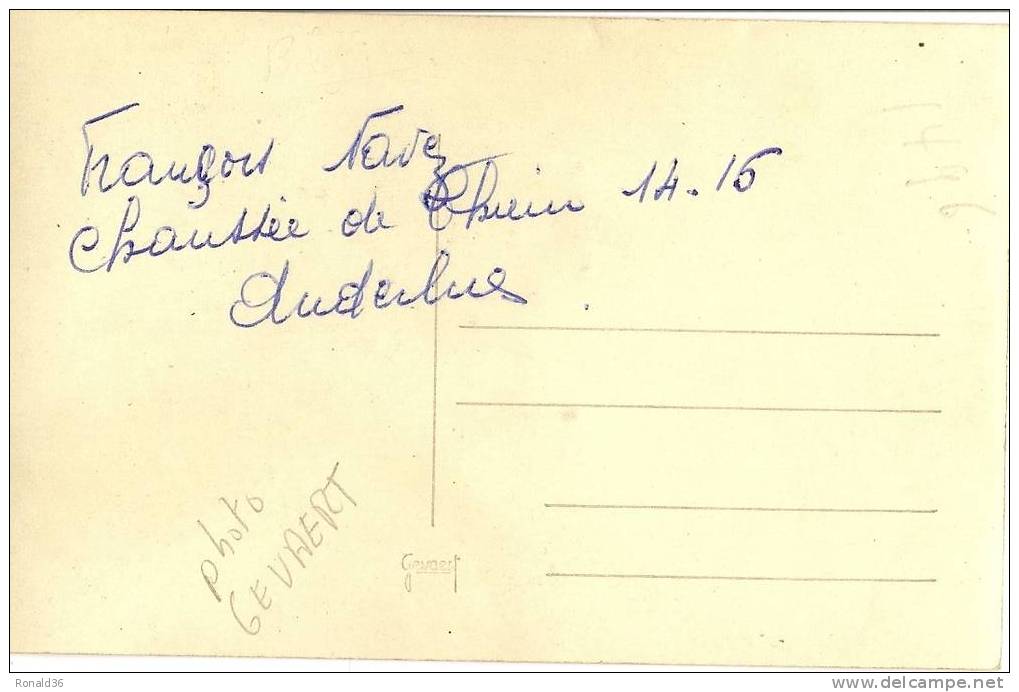 François Navez
Chaussée de Thuin 14-16
Anderlues
photo
GEVAERT
Gevaert
Ronald36
delcampe.net